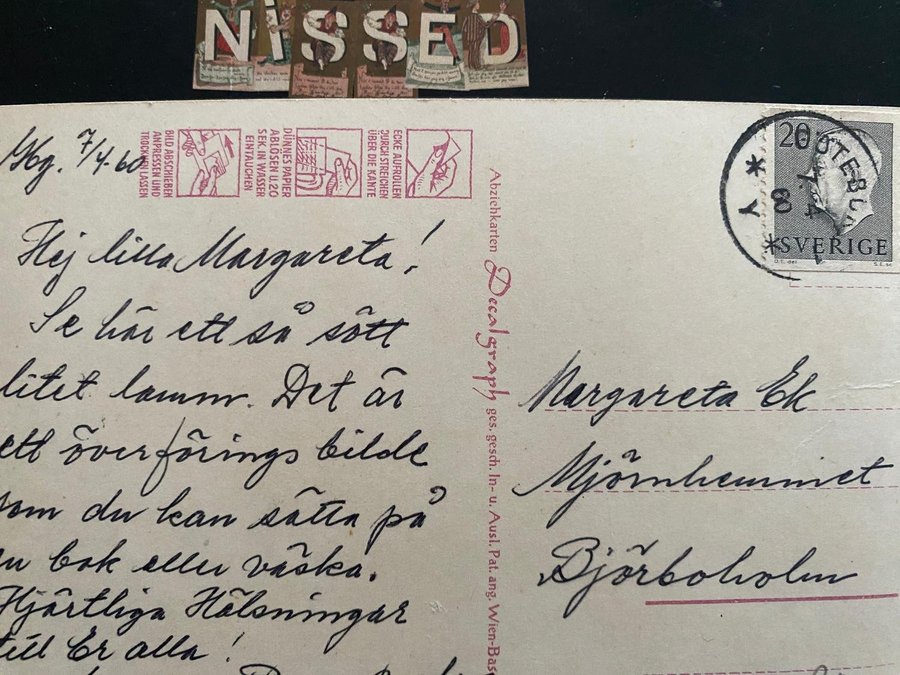 NiSSED
7/4-60
BILD ABSCHIEBEN
ANPRESSEN UND
TROCKEN LASSEN
DÜNNES PAPIER
ABLÖSEN U. 20
SEK. IN WASSER
EINTAUCHEN
ECKE AUFROLLEN
DURCH STREICHEN
ÜBER DIE KANTE
Hej lilla Margareta!
Se här ett så sött
litet lamm. Det är
ett överförings bilde
som du kan sätta på
bok eller väska.
Hjärtliga Hälsningar
till Er alla!
Abziehkarten Decalgraph ges. gesch. In- u. Ausl. Pat. ang. Wien-Bas
20
GÖTEBO
SVERIGE
Margareta Ek
Mjörnhemmet
Björboholm